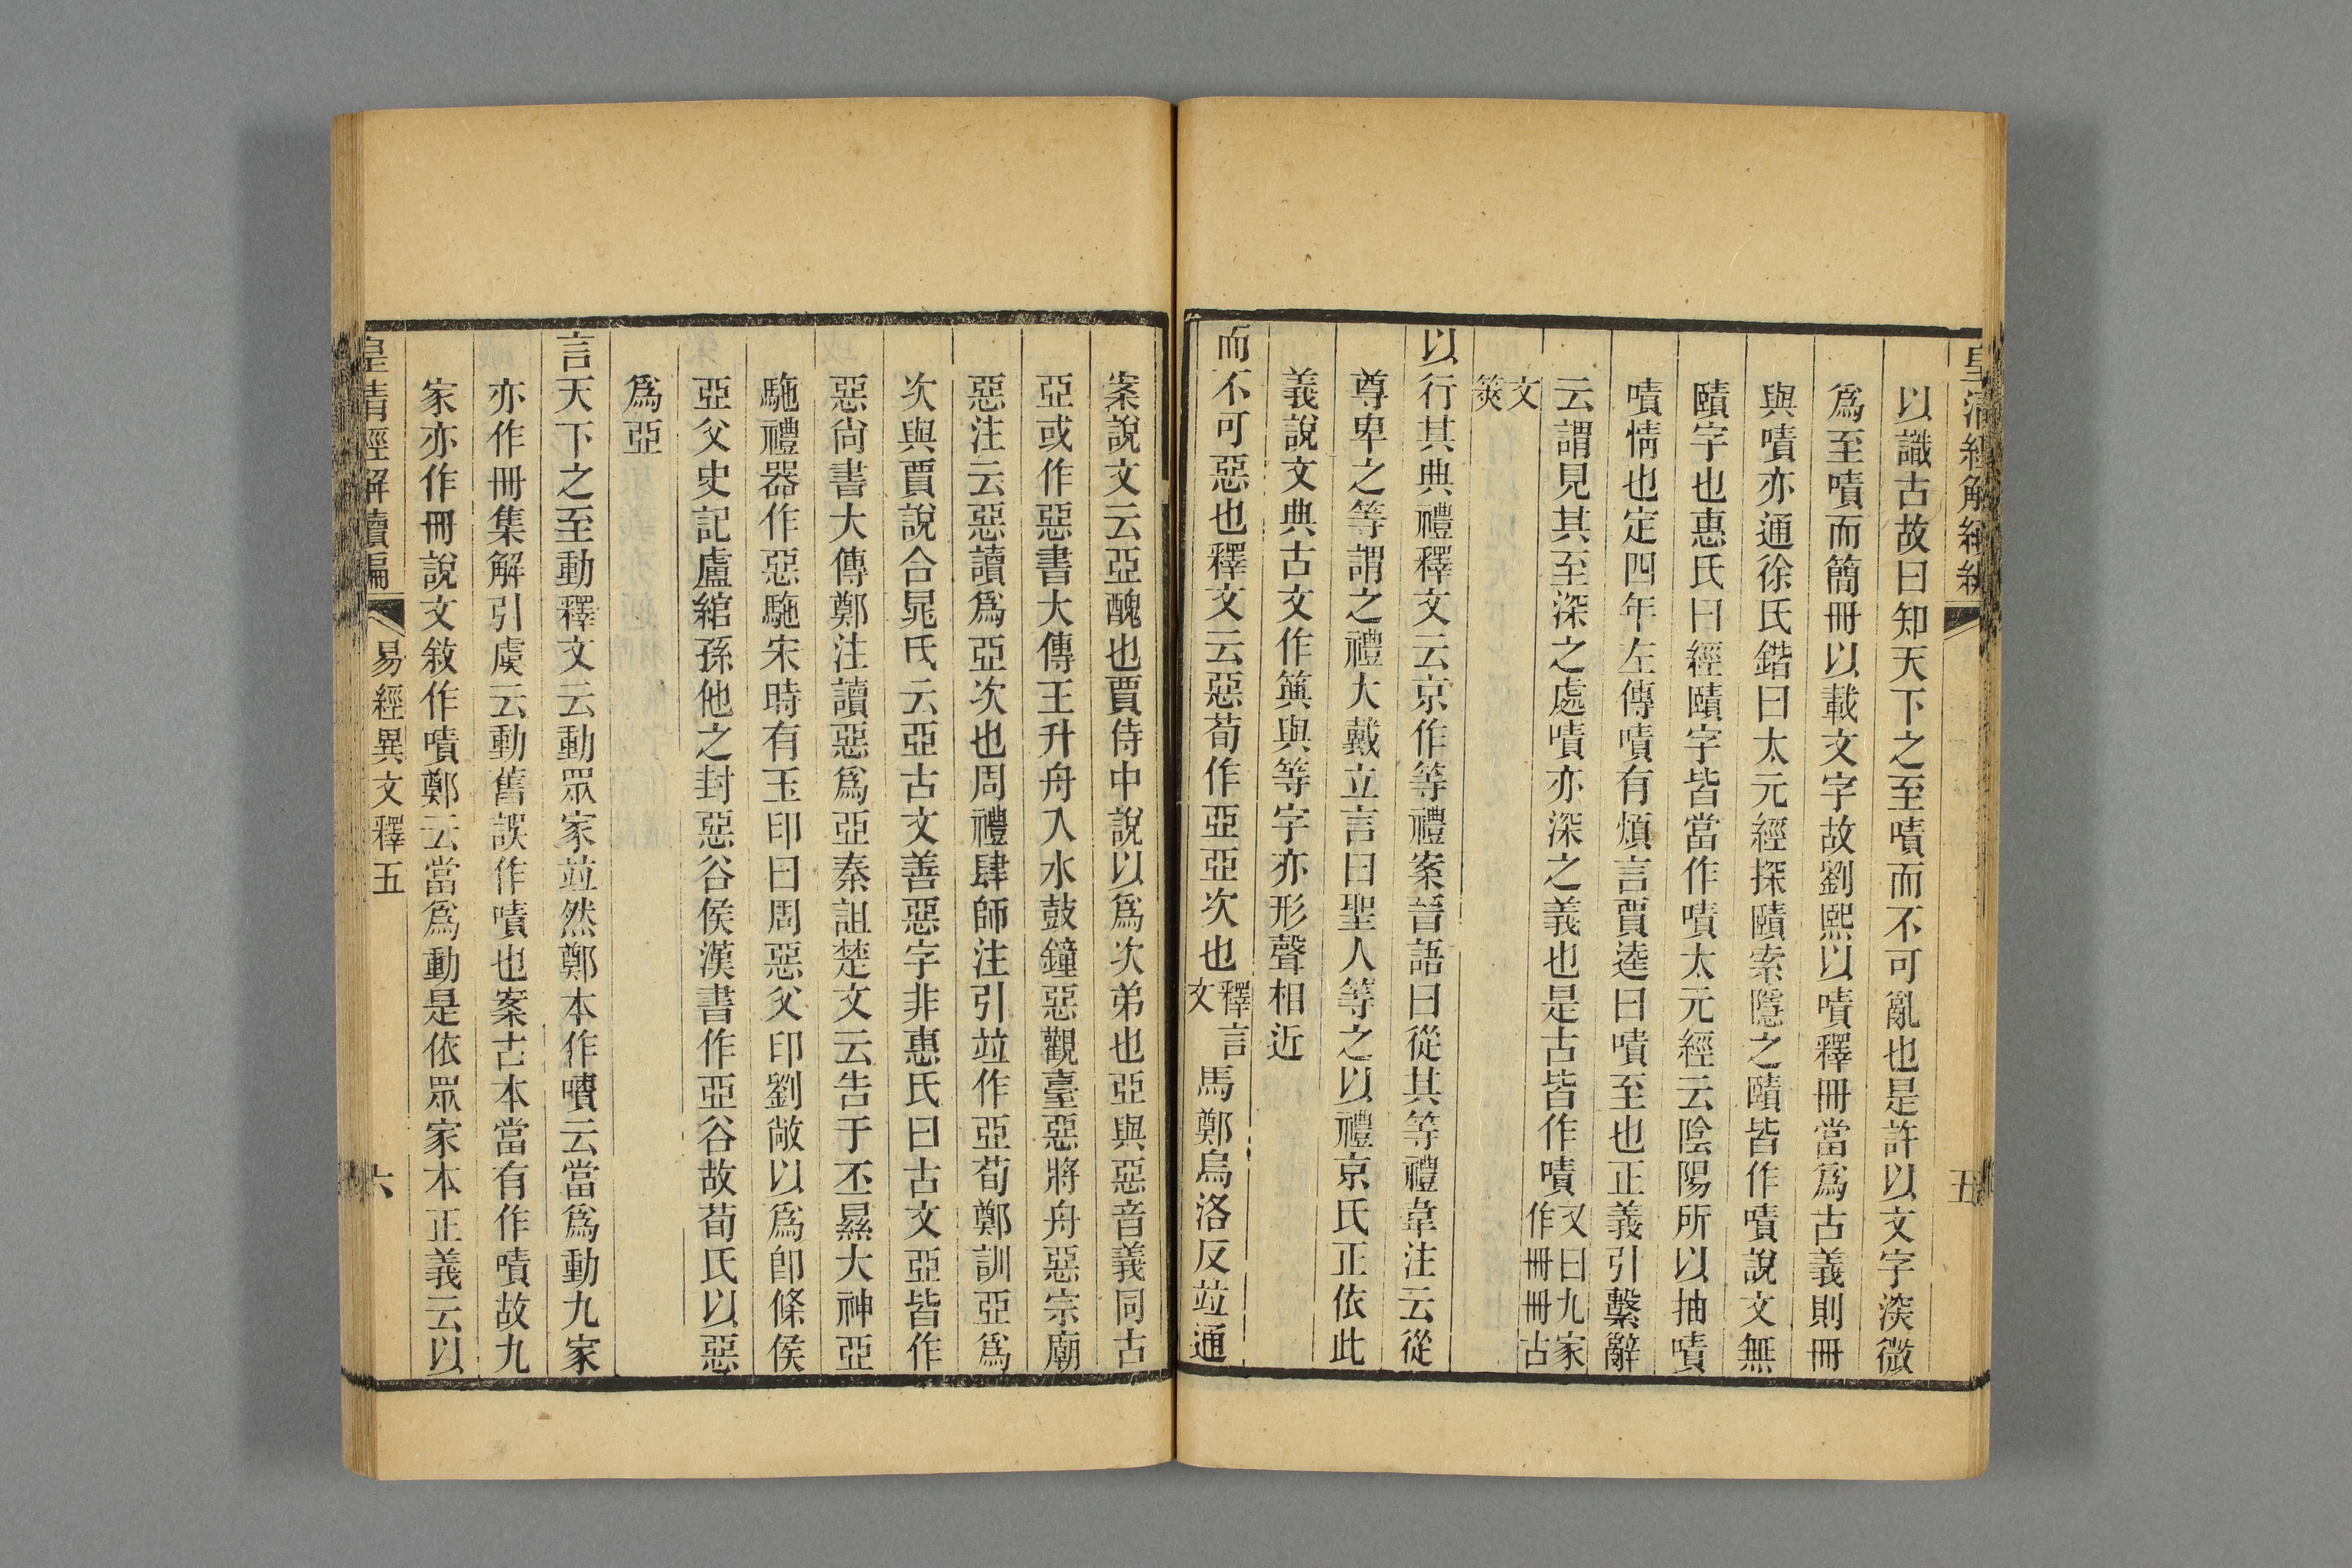 皇清經解續編
五
以識古故曰知天下之至嘖而不可亂也是許以文字深微
爲至嘖而簡冊以載文字故劉熙以嘖釋冊當爲古義則冊
與嘖亦通徐氏鍇曰太元經探賾索隱之賾皆作嘖說文無
賾字也惠氏曰經賾字皆當作嘖太元經云陰陽所以抽嘖
嘖情也定四年左傳嘖有煩言賈逵曰嘖至也正義引繫辭
云謂見其至深之處嘖亦深之義也是古皆作嘖又曰九家作冊冊古
文筴
以行其典禮釋文云京作等禮案晉語曰從其等禮韋注云從
尊卑之等謂之禮大戴立言曰聖人等之以禮京氏正依此
義說文典古文作籅與等字亦形聲相近
而不可惡也釋文云惡荀作亞亞次也釋言文馬鄭烏洛反竝通
案說文云亞醜也賈侍中說以爲次弟也亞與惡音義同古
亞或作惡書大傳王升舟入水鼓鐘惡觀臺惡將舟惡宗廟
惡注云惡讀爲亞次也周禮肆師注引竝作亞荀鄭訓亞爲
次與賈說合晁氏云亞古文善惡字非惠氏曰古文亞皆作
惡尚書大傳鄭注讀惡爲亞秦詛楚文云告于丕㬎大神亞
駞禮器作惡駞宋時有玉印曰周惡父印劉敞以爲卽條侯
亞父史記盧綰孫他之封惡谷侯漢書作亞谷故荀氏以惡
爲亞
言天下之至動釋文云動眾家竝然鄭本作嘖云當爲動九家
亦作冊集解引虞云動舊誤作嘖也案古本當有作嘖故九
家亦作冊說文敘作嘖鄭云當爲動是依眾家本正義云以
皇清經解續編
易經異文釋五
六